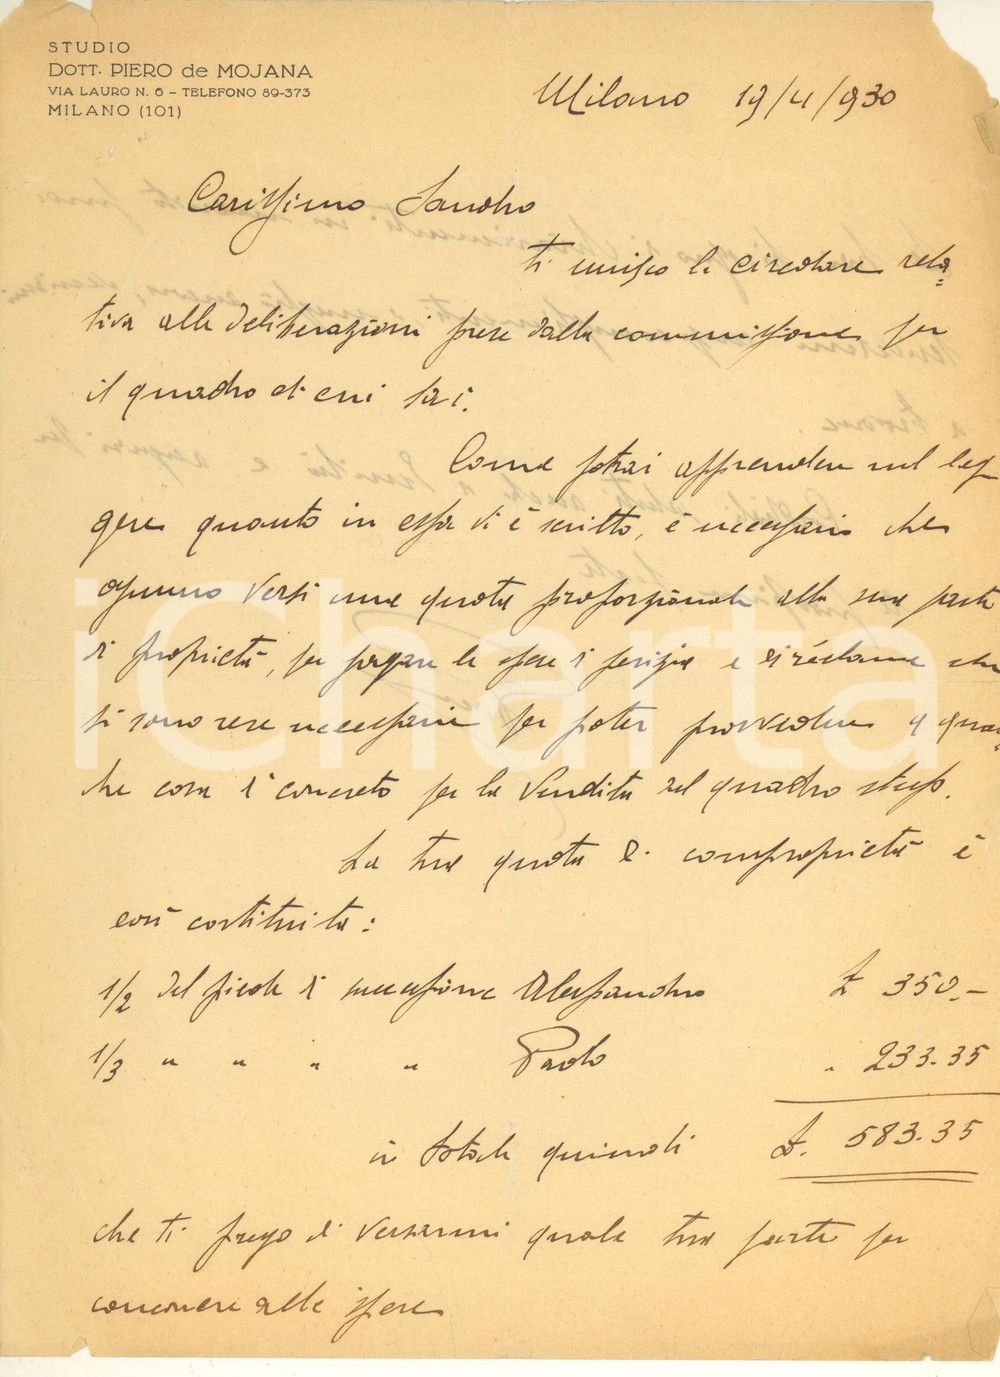 STUDIO
DOTT. PIERO de MOJANA
VIA LAURO N. 6 – TELEFONO 89-373
MILANO (101)
Milano 19/4/930
Carissimo Sandro
ti unisco la circolare rela=
tiva alle deliberazioni prese dalla commissione per
il quadro di cui sai.
Come potrai apprendere nel leg
gere quanto in essa vi è scritto, è necessario che
ognuno versi una quota proporzionale alla sua parte
di proprietà, per pagare le spese di perizia e di réclame che
si sono rese necessarie per poter provvedere a qual=
che cosa di concreto per la vendita del quadro stesso.
La tua quota di comproprietà è
così costituita:
1/2 del piede di successione Alessandro £ 350.–
1/3 " " " " Paolo " 233.35
in totale quindi £. 583.35
che ti prego di versarmi quale tua parte per
concorrere alle spese
iCharta